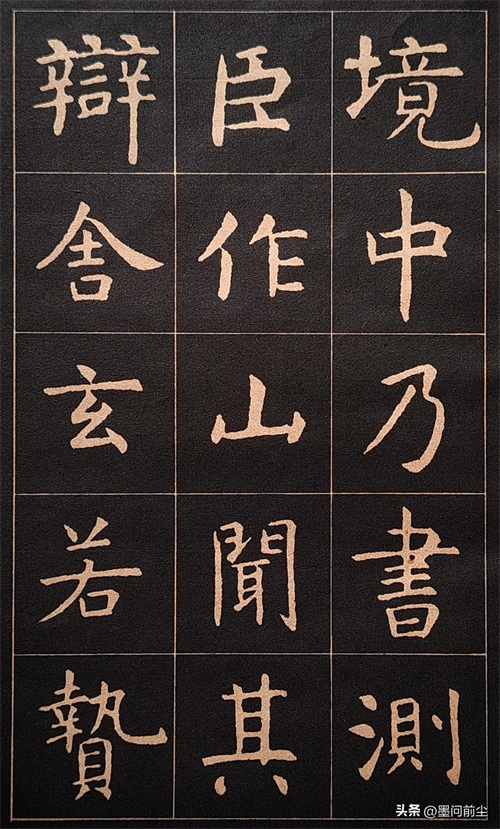 境中乃書測
臣作山聞其
辯舍玄若贄
头条 @墨问前尘